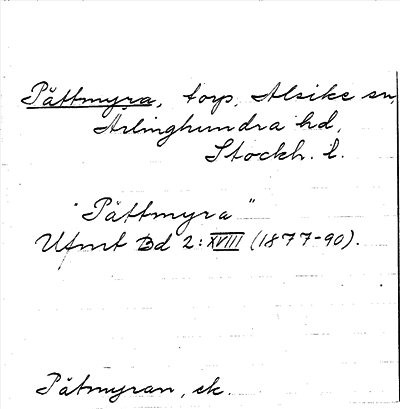 Pättmyra, torp, Alsike sn,
Ärlinghundra hd,
Stockh. l.
"Pättmyra"
Utmt Bd 2: XVIII (1877-90).
Pätmyran, ek.